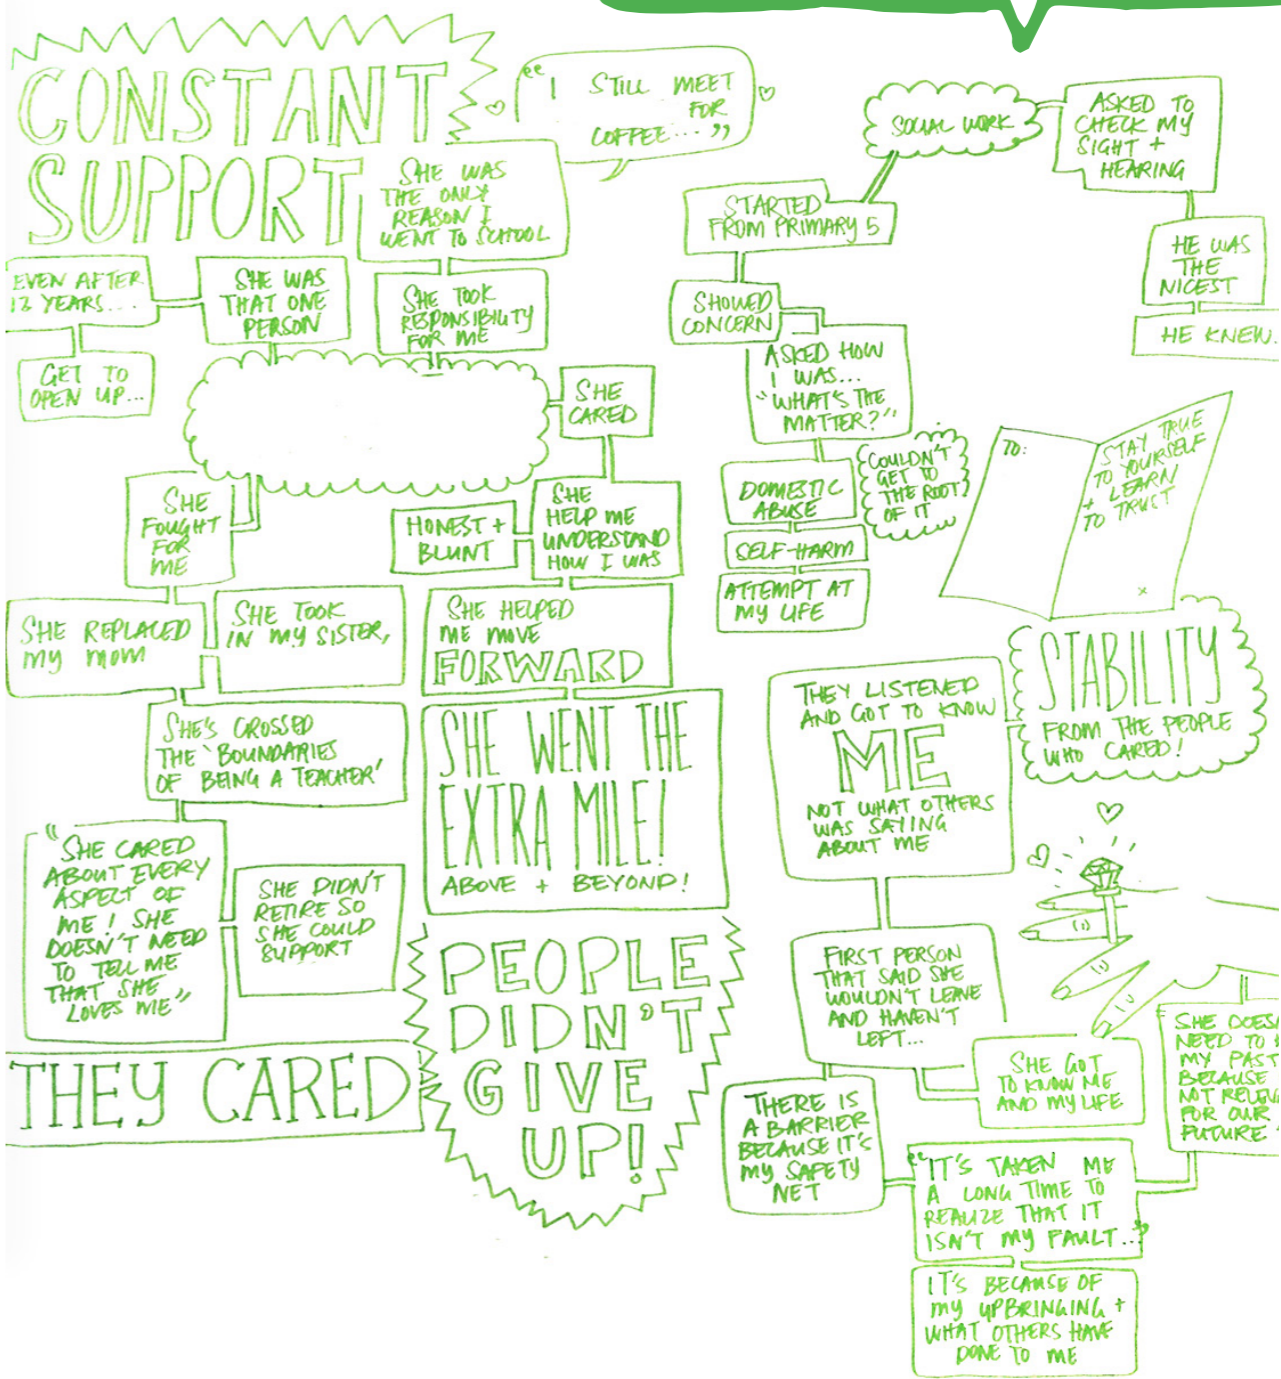 CONSTANT
SUPPORT
"I STILL MEET
FOR
COFFEE..."
SHE WAS
THE ONLY
REASON I
WENT TO SCHOOL
EVEN AFTER
12 YEARS...
SHE WAS
THAT ONE
PERSON
SHE TOOK
RESPONSIBILITY
FOR ME
GET TO
OPEN UP...
SHE
CARED
SHE
FOUGHT
FOR
ME
HONEST +
BLUNT
SHE
HELP ME
UNDERSTAND
HOW I WAS
SHE REPLACED
MY MOM
SHE TOOK
IN MY SISTER,
SHE HELPED
ME MOVE
FORWARD
SHE'S CROSSED
THE 'BOUNDARIES
OF BEING A TEACHER'
SHE WENT THE
EXTRA MILE!
ABOVE + BEYOND!
"SHE CARED
ABOUT EVERY
ASPECT OF
ME! SHE
DOESN'T NEED
TO TELL ME
THAT SHE
LOVES ME"
SHE DIDN'T
RETIRE SO
SHE COULD
SUPPORT
THEY CARED
PEOPLE
DIDN'T
GIVE
UP!
SOCIAL WORK
ASKED TO
CHECK MY
SIGHT +
HEARING
STARTED
FROM PRIMARY 5
HE WAS
THE
NICEST
HE KNEW.
SHOWED
CONCERN
ASKED HOW
I WAS...
"WHAT'S THE
MATTER?"
COULDN'T
GET TO
THE ROOT
OF IT
DOMESTIC
ABUSE
SELF-HARM
ATTEMPT AT
MY LIFE
TO:
STAY TRUE
TO YOURSELF
+ LEARN
TO TRUST
x
STABILITY
FROM THE PEOPLE
WHO CARED!
THEY LISTENED
AND GOT TO KNOW
ME
NOT WHAT OTHERS
WAS SAYING
ABOUT ME
FIRST PERSON
THAT SAID SHE
WOULDN'T LEAVE
AND HAVEN'T
LEFT...
SHE GOT
TO KNOW ME
AND MY LIFE
SHE DOES
NEED TO
MY PAST
BECAUSE
NOT
FOR OUR
FUTURE
THERE IS
A BARRIER
BECAUSE IT'S
MY SAFETY
NET
"IT'S TAKEN ME
A LONG TIME TO
REALIZE THAT IT
ISN'T MY FAULT..."
IT'S BECAUSE OF
MY UPBRINGING +
WHAT OTHERS HAVE
DONE TO ME